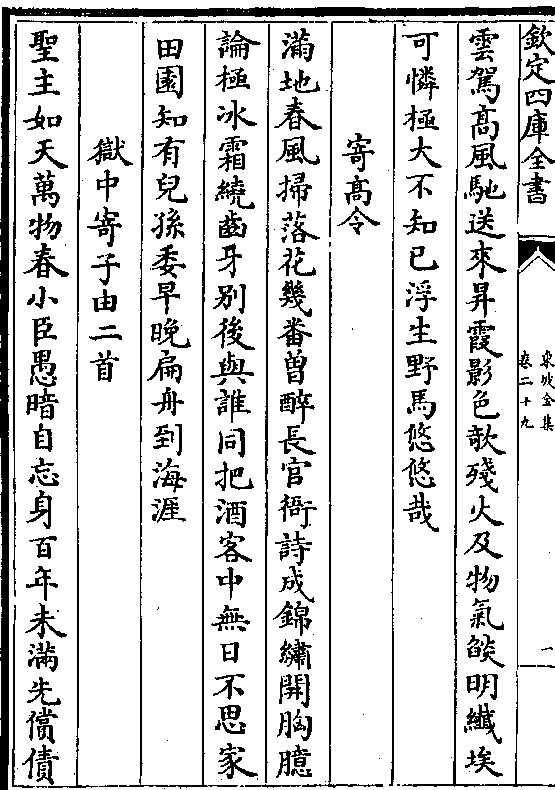 欽定四庫全書
東坡全集
卷二十九
一
雲駕高風馳送來昇霞影色欹殘火及物氣燄明纖埃
可憐極大不知已浮生野馬悠悠哉
寄高令
滿地春風掃落花幾番曽醉長官衙詩成錦繡開胸臆
論極冰霜繞齒牙别後與誰同把酒客中無日不思家
田園知有兒孫委早晚扁舟到海涯
獄中寄子由二首
聖主如天萬物春小臣愚暗自忘身百年未滿先償債